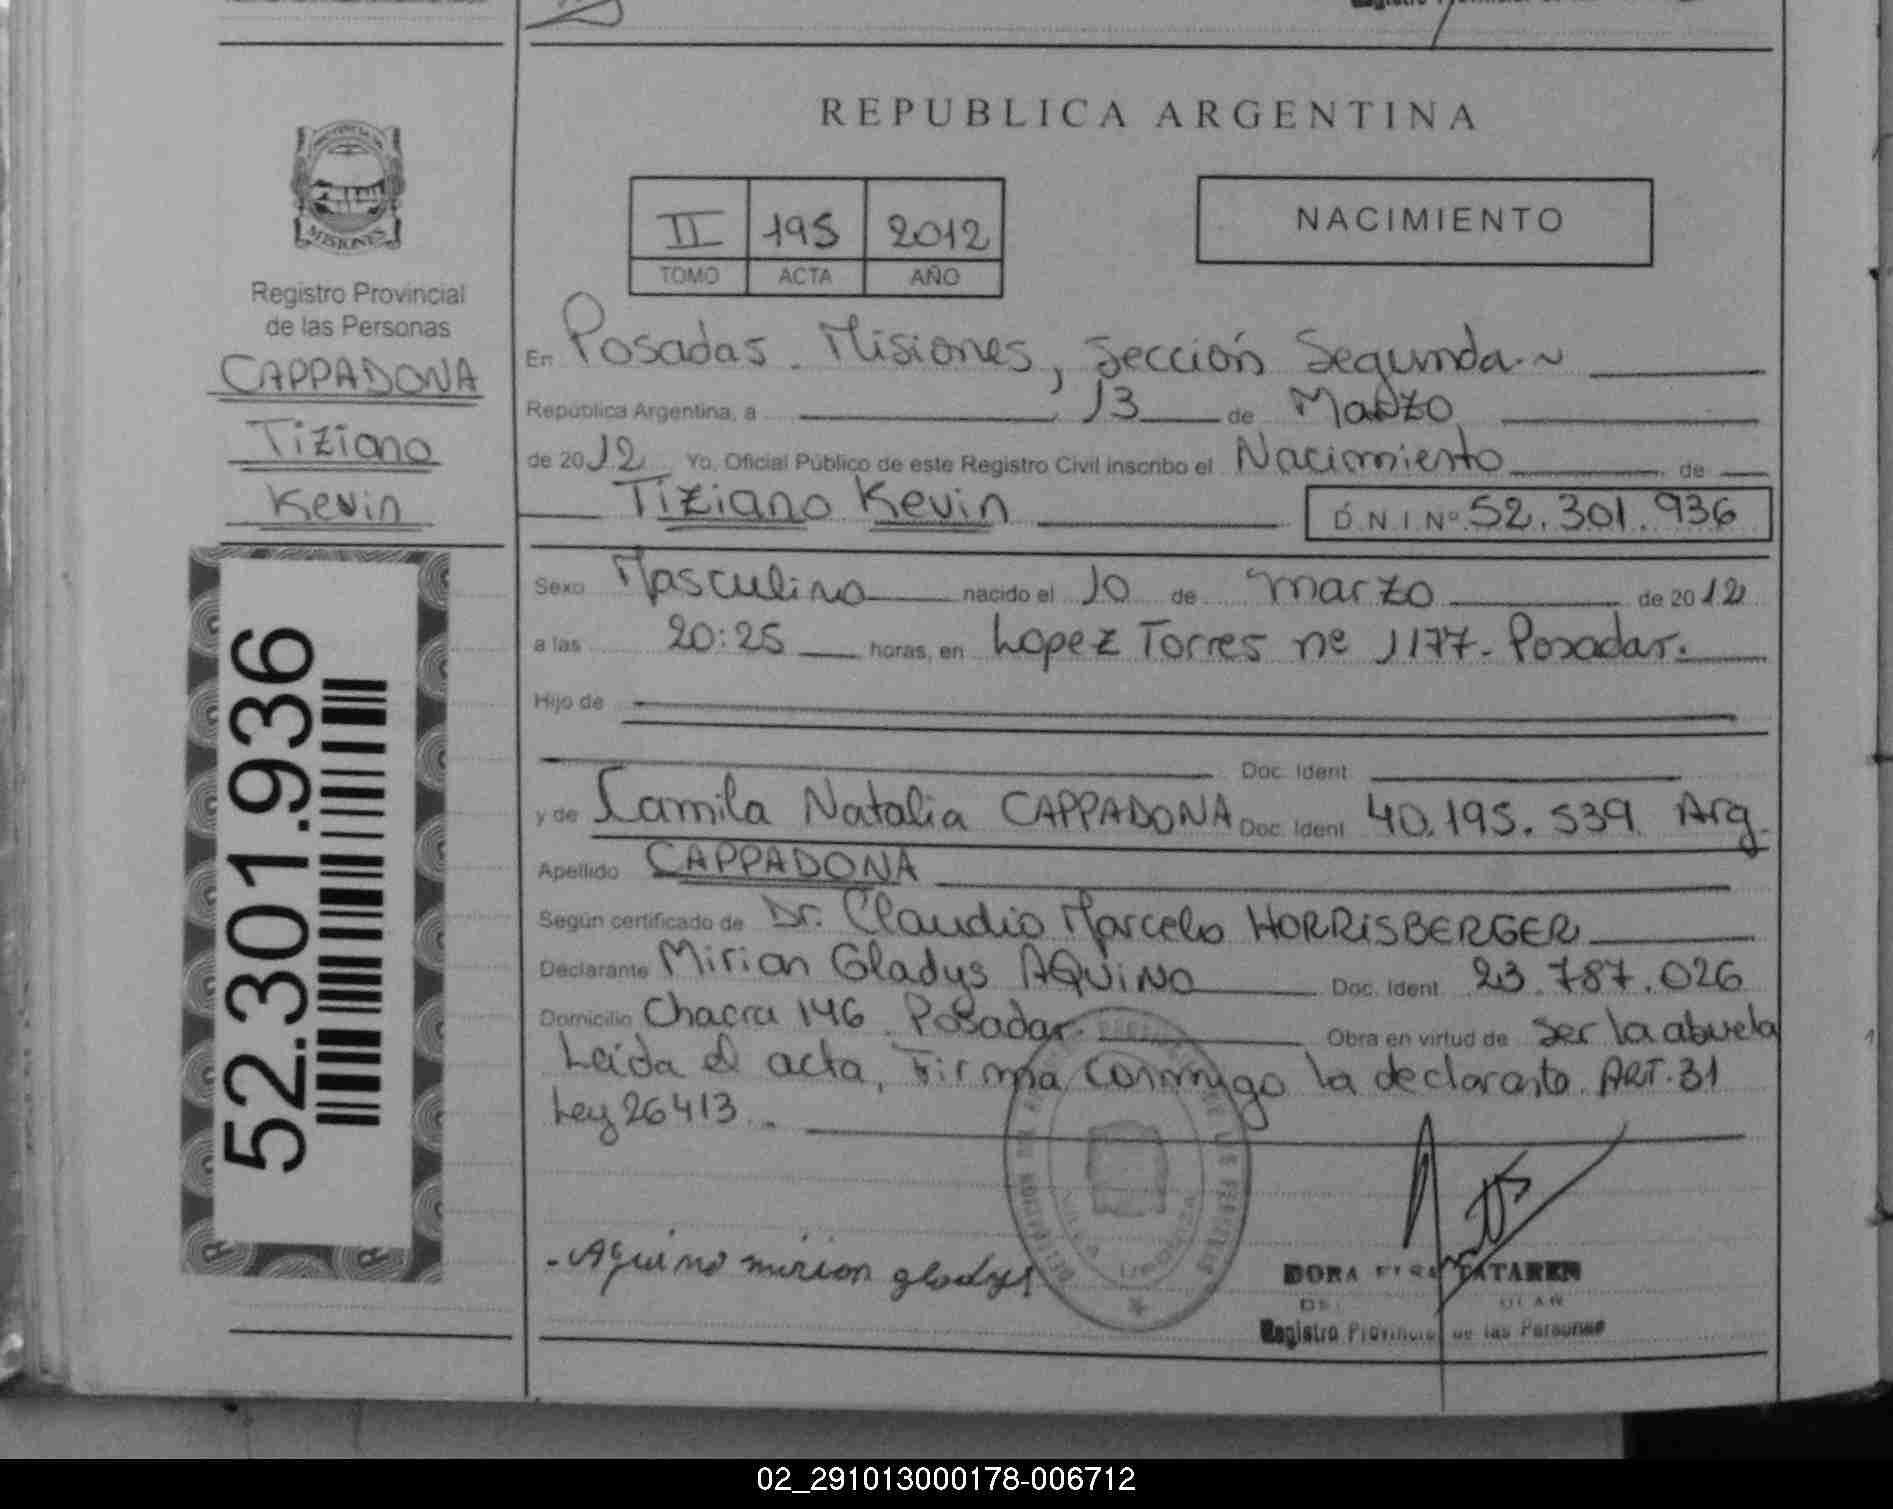 REPUBLICA ARGENTINA
PROVINCIA DE
MISIONES
Registro Provincial
de las Personas
CAPPADONA
Tiziano
Kevin
52.301.936
II 195 2012
TOMO ACTA AÑO
NACIMIENTO
En Posadas. Misiones, Sección Segunda.~
República Argentina, a 13 de Marzo
de 2012 Yo, Oficial Público de este Registro Civil inscribo el Nacimiento de
Tiziano Kevin D.N.I Nº 52.301.936
Sexo Masculino nacido el 10 de marzo de 2012
a las 20:25 horas, en Lopez Torres nº 1177. Posadas.
Hijo de
Doc. Ident.
y de Camila Natalia CAPPADONA Doc. Ident. 40.195.539 Arg.
Apellido CAPPADONA
Según certificado de Dr. Claudio Marcelo HORRISBERGER
Declarante Mirian Gladys AQUINO Doc. Ident. 23.787.026
Domicilio Chacra 146 Posadas. Obra en virtud de ser la abuela
Leída el acta, Firma conmigo la declarante. ART. 31
Ley 26413.
Aquino mirian gladys
DORA TATAREN
Registro Provincial de las Personas
02_291013000178-006712